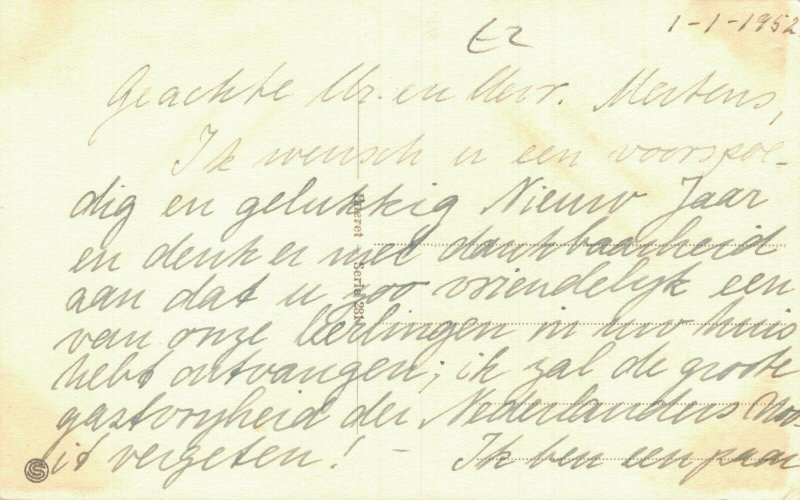 1-1-1952
Geachte Mr. en Mevr. Mertens,
Ik wensch u een voorspoe-
dig en gelukkig Nieuw Jaar
en denk er met dankbaarheid
aan dat u zoo vriendelijk een
van onze leerlingen in uw huis
hebt ontvangen; ik zal de groote
gastvrijheid der Nederlanders
it vergeten! - Ik ben een paar
Serie 231